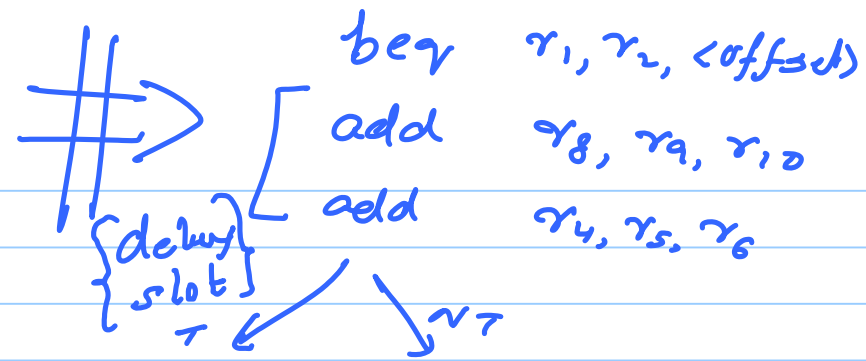 beq r1, r2, <offset>
add r8, r9, r10
add r4, r5, r6
{delay
slot}
T NT